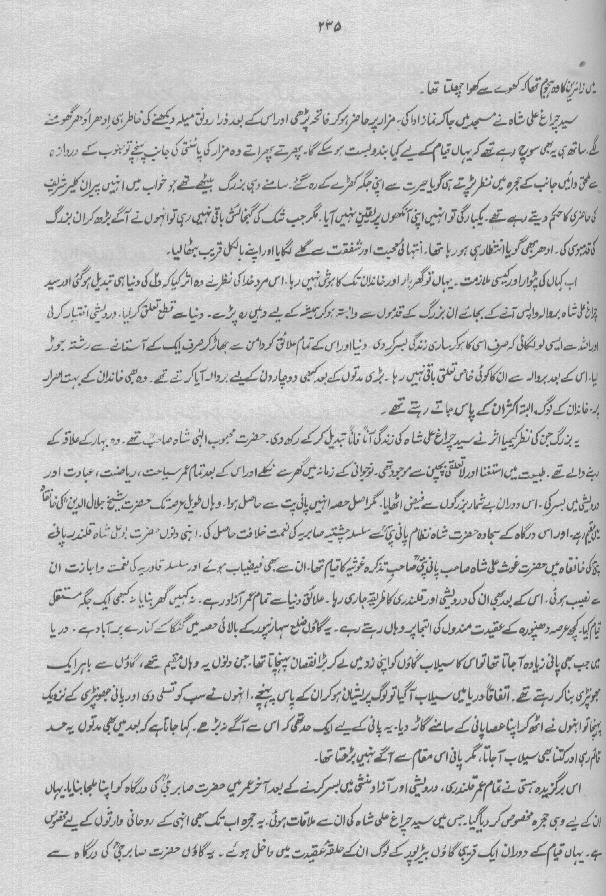 ۲۳۵
میں زائرین کا وہ ہجوم تھا کہ کھوے سے کھوا چھلتا تھا۔
سید چراغ علی شاہ نے مسجد میں جا کر نماز ادا کی۔ مزار پر حاضر ہو کر فاتحہ پڑھی اور اس کے بعد ذرا رونق میلہ دیکھنے کی خاطر ہی اِدھر اُدھر گھومنے
لگے۔ ساتھ ہی یہ بھی سوچ رہے تھے کہ یہاں قیام کے لیے کیا بندوبست ہو سکے گا۔ پھرتے پھراتے وہ مزار کی پائنتی کی جانب پہنچے تو جنوب کے دروازہ
سے ملحق دائیں جانب کے حجرہ میں نظر پڑتے ہی گویا حیرت سے اپنی جگہ کھڑے کے رہ گئے۔ سامنے وہی بزرگ بیٹھے تھے جو خواب میں انہیں پیران کلیر شریف
کی حاضری کا حکم دیتے رہے تھے۔ یکبارگی تو انہیں اپنی آنکھوں پر یقین نہیں آیا۔ مگر جب شک کی گنجائش باقی نہیں رہی تو انہوں نے آگے بڑھ کر ان بزرگ
کی قدمبوسی کی۔ ادھر بھی گویا انتظار ہی ہو رہا تھا۔ انتہائی محبت اور شفقت سے گلے لگایا اور اپنے بالکل قریب بٹھا لیا۔
اب کہاں کی پٹوار اور کیسی ملازمت۔ یہاں تو گھر بار اور خاندان تک کا ہوش نہیں رہا۔ اس مرد خدا کی نظر نے وہ اثر کیا کہ دل کی دنیا ہی تبدیل ہو گئی اور سید
چراغ علی شاہ بروالہ واپس آنے کے بجائے ان بزرگ کے قدموں سے وابستہ ہو کر ہمیشہ کے لیے وہیں رہ پڑے۔ دنیا سے قطع تعلق کر لیا۔ درویشی اختیار کر لی
اور اللہ سے ایسی لو لگائی کہ صرف اسی کا ہو کر ساری زندگی بسر کر دی۔ دنیا اور اس کے تمام علائق کو دامن سے جھاڑ کر صرف ایک کے آستانے سے رشتہ جوڑ
لیا۔ اس کے بعد بروالہ سے ان کا کوئی خاص تعلق باقی نہیں رہا۔ بڑی مدتوں کے بعد کبھی دو چار دن کے لیے بروالہ آیا کرتے تھے۔ وہ بھی خاندان کے بہت اصرار
پر۔ خاندان کے لوگ البتہ اکثر ان کے پاس جاتے رہتے تھے۔
یہ بزرگ جن کی نظر کیمیا اثر نے سید چراغ علی شاہ کی زندگی آناً فاناً تبدیل کر کے رکھ دی۔ حضرت محبوب الٰہی شاہ صاحب تھے۔ وہ بہار کے علاقہ کے
رہنے والے تھے۔ طبیعت میں استغنا اور لاتعلقی بچپن سے موجود تھی۔ نوجوانی کے زمانہ میں گھر سے نکلے اور اس کے بعد تمام عمر سیاحت، ریاضت، عبادت اور
درویشی میں بسر کی۔ اس دوران بے شمار بزرگوں سے فیض اٹھایا۔ مگر اصل حصہ انہیں پانی پت سے حاصل ہوا۔ وہاں طویل عرصہ تک حضرت شیخ جلال الدینؒ کی خانقاہ
میں مقیم رہے۔ اور اس درگاہ کے سجادہ حضرت شاہ نظام پانی پتی سے سلسلہ چشتیہ صابریہ کی نعمت خلافت حاصل کی۔ انہی دنوں حضرت بو علی شاہ قلندر پانی
پتی کی خانقاہ میں حضرت غوث علی شاہ صاحب پانی پتیؒ صاحبِ تذکرہ غوثیہ کا قیام تھا۔ ان سے بھی فیضیاب ہوئے اور سلسلہ قادریہ کی نعمت و اجازت ان
سے نصیب ہوئی۔ اس کے بعد بھی ان کی درویشی اور قلندری کا طریقہ جاری رہا۔ علائق دنیا سے تمام عمر آزاد رہے۔ نہ کہیں گھر بنایا نہ کبھی ایک جگہ مستقل
قیام کیا۔ کچھ عرصہ کے عقیدت مندوں کی التجا پر وہاں رہتے رہے۔ یہ گاؤں ضلع سہارنپور کے بالائی حصہ میں گنگا کے کنارے پر آباد ہے۔ دریا
میں جب بھی پانی زیادہ آ جاتا تھا تو اس کا سیلاب گاؤں کو اپنی زد میں لے کر بڑا نقصان پہنچاتا تھا۔ جن دنوں یہ وہاں مقیم تھے، گاؤں سے باہر ایک
جھونپڑی بنا کر رہتے تھے۔ اتفاقاً دریا میں سیلاب آ گیا تو لوگ پریشان ہو کر ان کے پاس پہنچے، انہوں نے سب کو تسلی دی اور پانی جھونپڑی کے نزدیک
پہنچا تو انہوں نے اٹھ کر اپنا عصا پانی کے سامنے گاڑ دیا۔ یہ پانی کے لیے ایک حد تھی کہ اس سے آگے نہ بڑھے۔ کہا جاتا ہے کہ بعد میں بھی مدتوں یہ حد
قائم رہی اور کتنا بھی سیلاب آ جاتا، مگر پانی اس مقام سے آگے نہیں بڑھتا تھا۔
اس برگزیدہ ہستی نے تمام عمر قلندری، درویشی اور آزاد منشی میں بسر کرنے کے بعد آخر عمر میں حضرت صابرؒ کی درگاہ کو اپنا ملجا بنایا۔ یہاں
ان کے لیے وہی حجرہ مخصوص کر دیا گیا۔ جس میں سید چراغ علی شاہ کی ان سے ملاقات ہوئی۔ یہ حجرہ اب تک بھی انہی کے روحانی وارثوں کے لیے مخصوص
ہے۔ یہاں قیام کے دوران ایک قریبی گاؤں کے لوگ ان کے حلقہ عقیدت میں داخل ہوئے۔ یہ گاؤں حضرت صابرؒ کی درگاہ سے